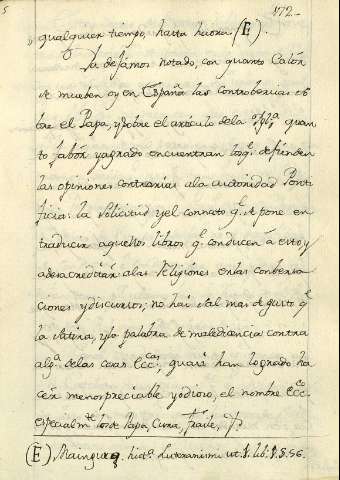 5 172-
„ qualquier tiempo, hasta haora (E).
Ya dejamos notado, con quanto Calór
se mueben oy en España las controbersias so
bre el Papa, y sobre el articulo dela Igl.ª quan
to sabór y agrado encuentran los q.e defienden
las opiniones contrarias ala autoridad Ponti
ficia: la solicitud y el connato q.e se pone en
traducir aquellos libros q.e conducen á esto, y
a desacreditár alas Religiónes enlas conbersa
ciones y discursos; no hai sal mas de gusto q.e
la satira, y la palabra de maledicencia contra
alg.ª delas cosas Ecc.cas, quasi han logrado ha
cér menospreciable y odioso, el nombre Ecc.co
especialm.te los de Papa, Curia, frayle,
(E), Maingurg, hist.ª Luteranismi ut. S. lib. S. §. 56.